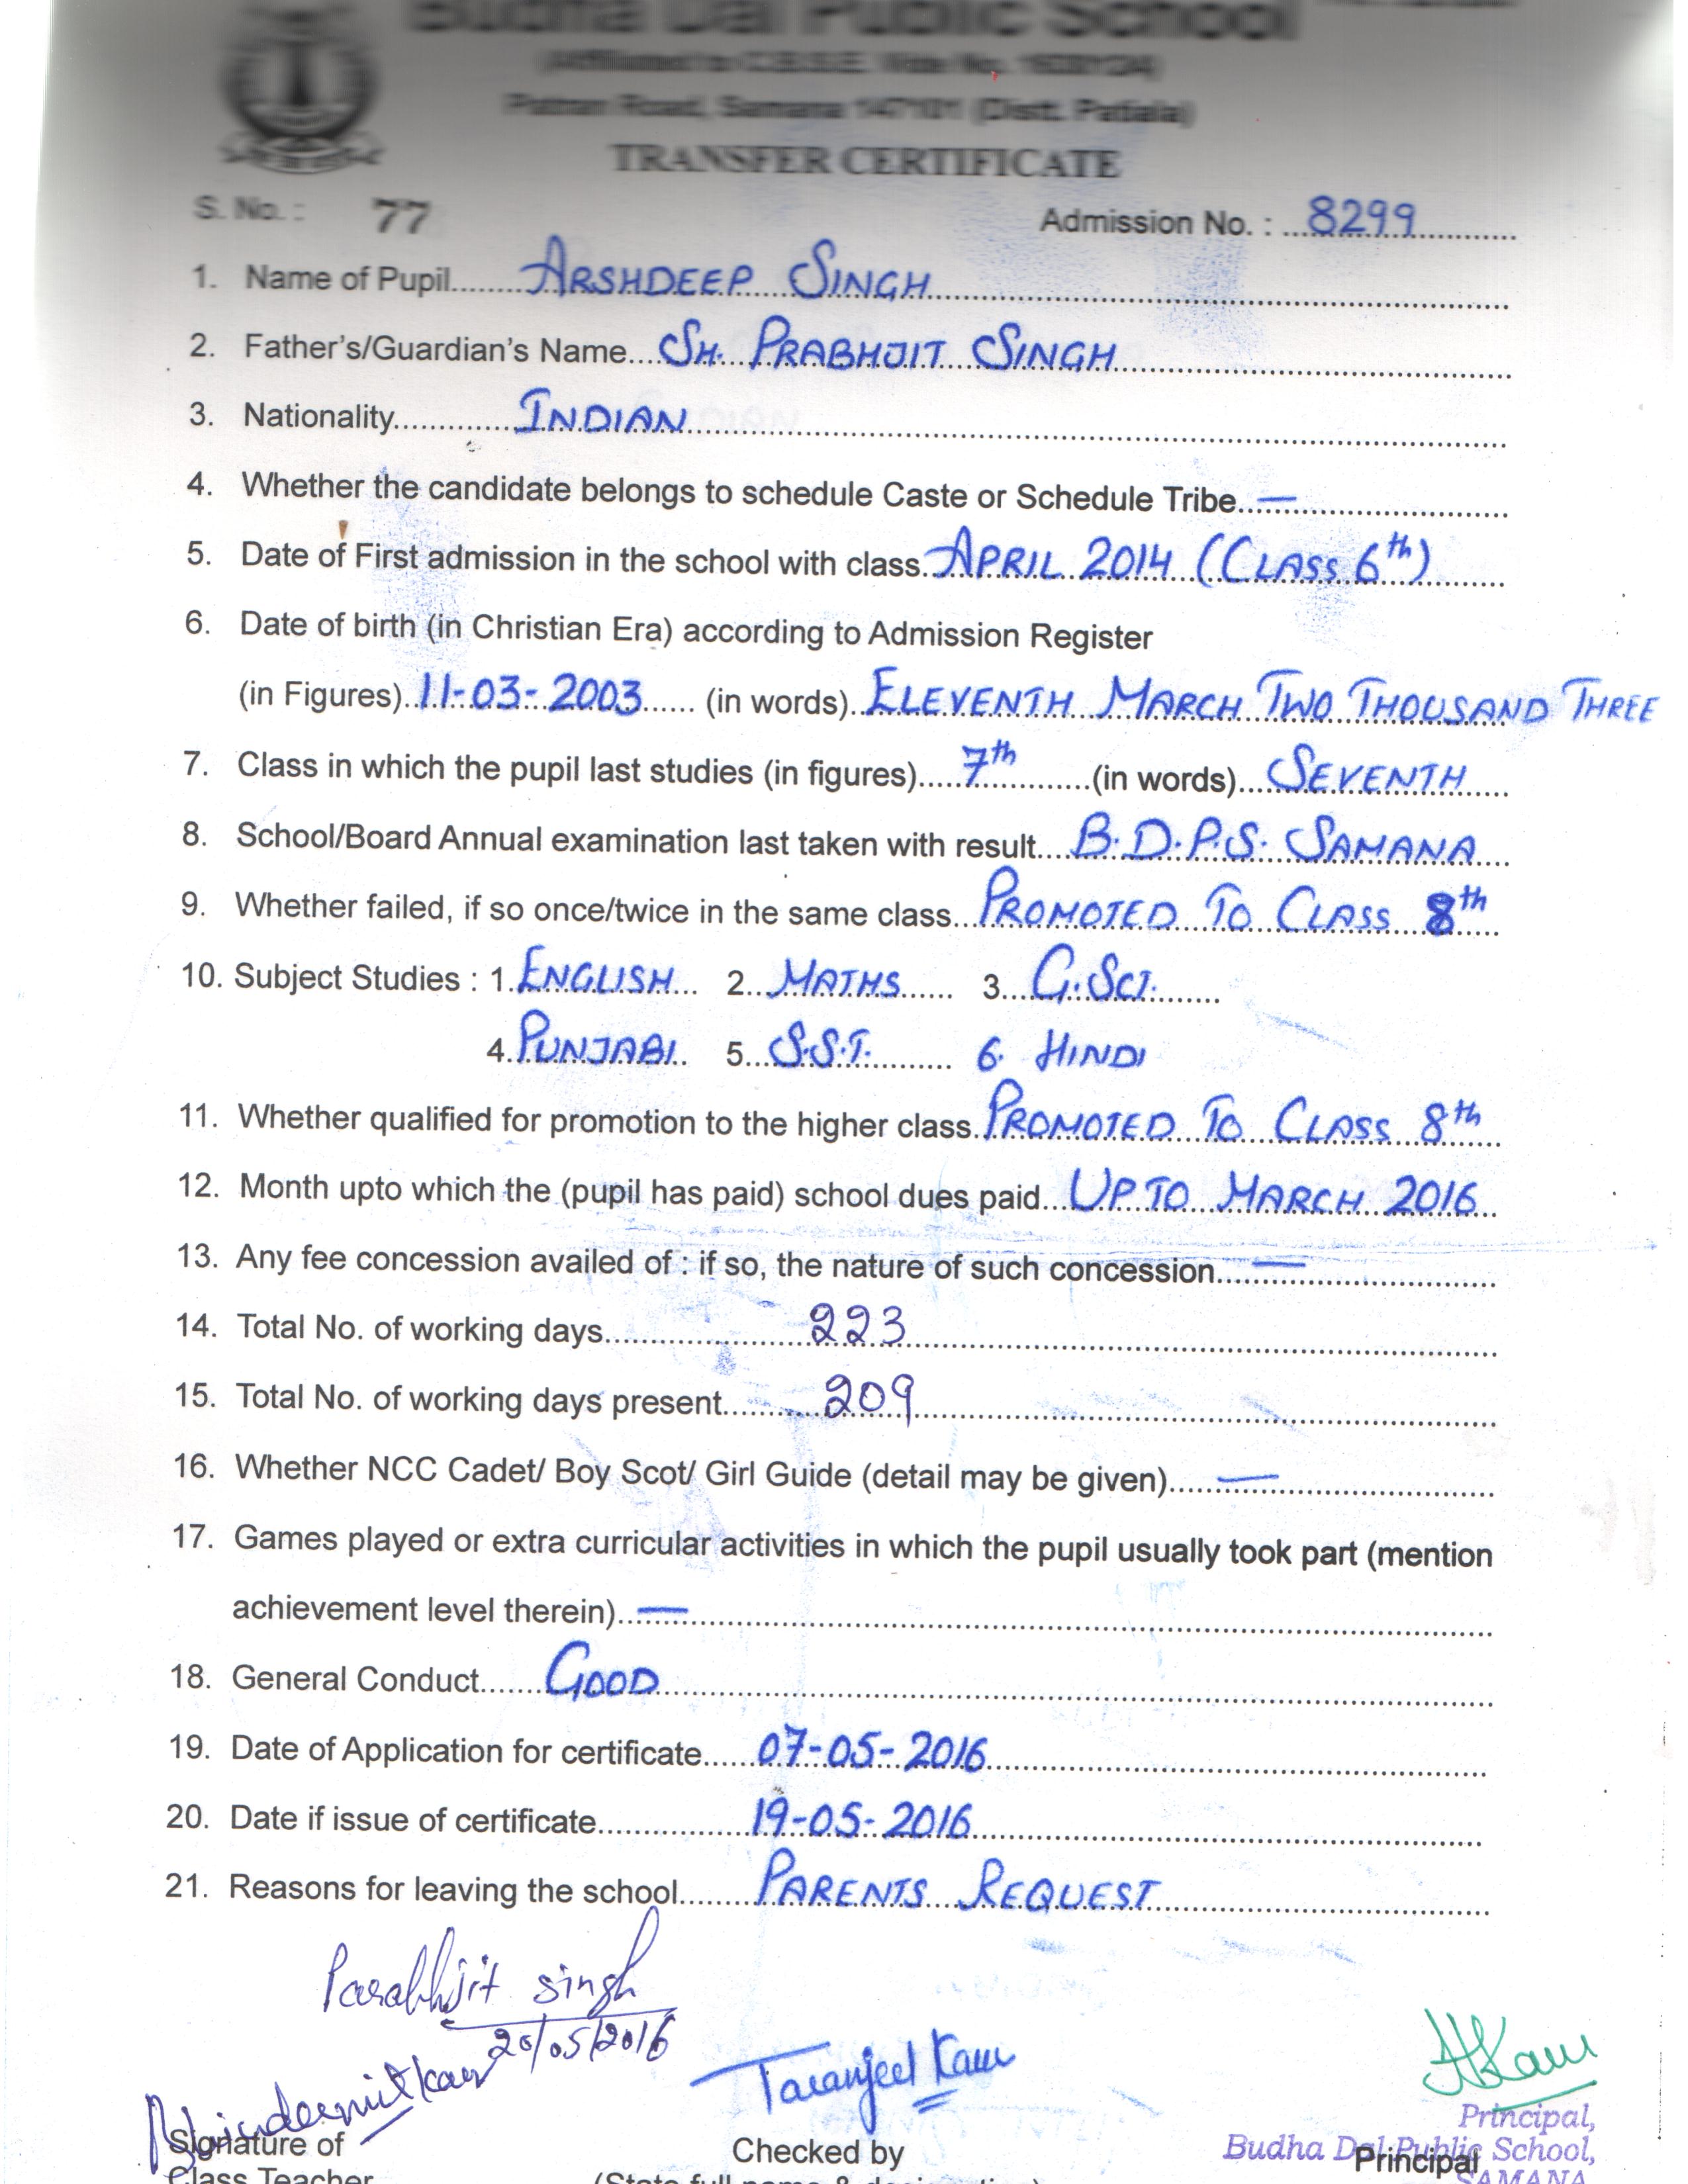 Budha Dal Public School
(Affiliated to C.B.S.E. Vide No.
Patran Road, Samana 147101 (Distt. Patiala)
TRANSFER CERTIFICATE
S. No. : 77 Admission No. : 8299
1. Name of Pupil ARSHDEEP SINGH
2. Father's/Guardian's Name SH. PRABHJIT SINGH
3. Nationality INDIAN
4. Whether the candidate belongs to schedule Caste or Schedule Tribe —
5. Date of First admission in the school with class APRIL 2014 (CLASS 6th)
6. Date of birth (in Christian Era) according to Admission Register
(in Figures) 11-03-2003 (in words) ELEVENTH MARCH TWO THOUSAND THREE
7. Class in which the pupil last studies (in figures) 7th (in words) SEVENTH
8. School/Board Annual examination last taken with result B.D.P.S. SAMANA
9. Whether failed, if so once/twice in the same class PROMOTED TO CLASS 8th
10. Subject Studies : 1. ENGLISH 2. MATHS 3. G.SCI.
4. PUNJABI 5. S.S.T. 6. HINDI
11. Whether qualified for promotion to the higher class PROMOTED TO CLASS 8th
12. Month upto which the (pupil has paid) school dues paid UPTO MARCH 2016
13. Any fee concession availed of : if so, the nature of such concession —
14. Total No. of working days 223
15. Total No. of working days present 209
16. Whether NCC Cadet/ Boy Scot/ Girl Guide (detail may be given) —
17. Games played or extra curricular activities in which the pupil usually took part (mention
achievement level therein) —
18. General Conduct GOOD
19. Date of Application for certificate 07-05-2016
20. Date if issue of certificate 19-05-2016
21. Reasons for leaving the school PARENTS REQUEST
Parabhjit singh
20/05/2016
Taranjeet Kaur
Principal,
Budha Dal Public School,
SAMANA
Signature of Checked by Principal
Class Teacher (State full name & designation)